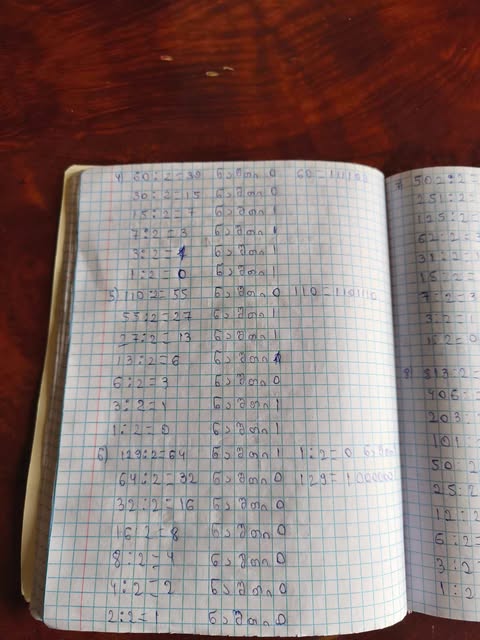 4) 60:2=30 ნაშთი 0 60=111100
30:2=15 ნაშთი 0
15:2=7 ნაშთი 1
7:2=3 ნაშთი 1
3:2=1 ნაშთი 1
1:2=0 ნაშთი 1
5) 110:2=55 ნაშთი 0 110=1101110
55:2=27 ნაშთი 1
27:2=13 ნაშთი 1
13:2=6 ნაშთი 1
6:2=3 ნაშთი 0
3:2=1 ნაშთი 1
1:2=0 ნაშთი 1
6) 129:2=64 ნაშთი 1 1:2=0 ნაშთი
64:2=32 ნაშთი 0 129=1000000
32:2=16 ნაშთი 0
16:2=8 ნაშთი 0
8:2=4 ნაშთი 0
4:2=2 ნაშთი 0
2:2=1 ნაშთი 0
7) 502:2=
251:2=
125:2=
62:2=3
31:2=1
15:2=
7:2=3
3:2=1
1:2=0
8) 813:2=
406:2
203:
101:
50:2
25:2
12:2
6:2=
3:2
1:2